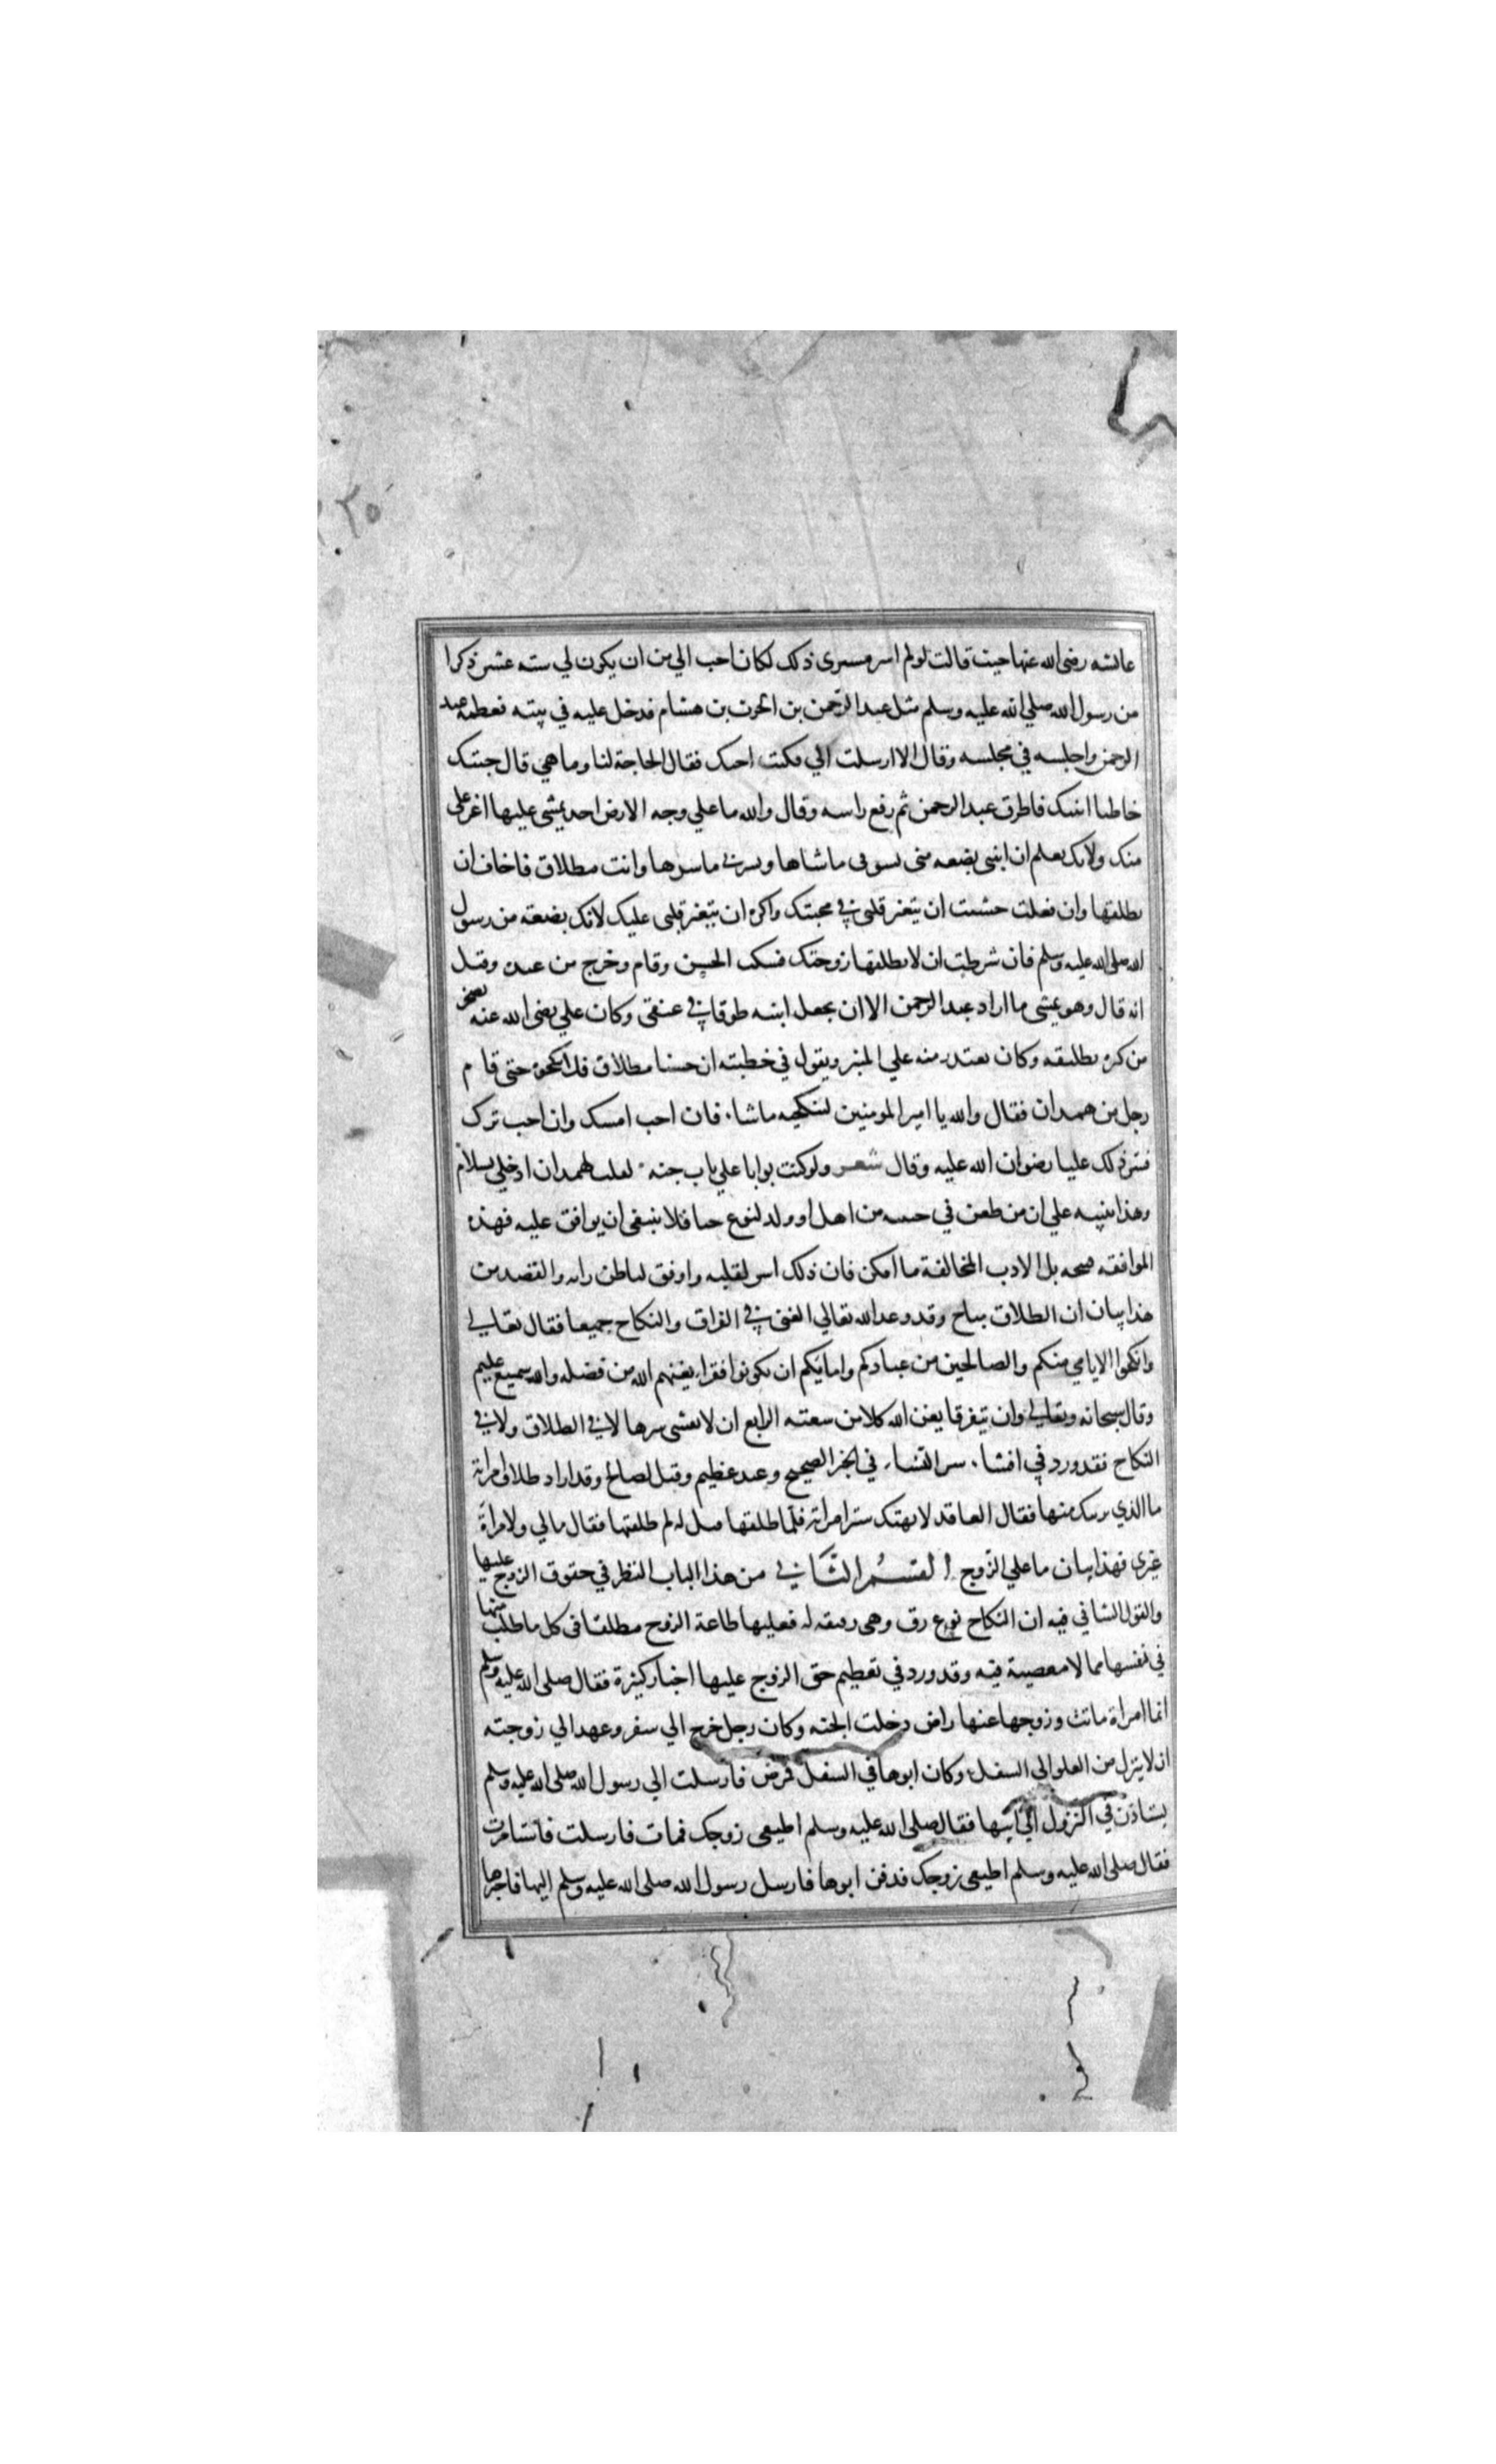 عائشه رضى الله عنها حيث قالت لو لم اسر مسيرى ذلك لكان احب الي من ان يكون لي سته عشر ذكرا
من رسول الله صلي الله عليه وسلم مثل عبد الرحمن بن الحرث بن هشام فدخل عليه في بيته فعظمه عبد
الرحمن واجلسه في مجلسه وقال الا ارسلت الي فكنت اجيك فقال الحاجة لنا وما هي قال جيتك
خاطبا ابنتك فاطرق عبد الرحمن ثم رفع راسه وقال والله ما علي وجه الارض احد يمشى عليها اعز على
منك ولانك تعلم ان ابنتى بضعه منى يسوني ما ساها ويسرني ما سرها وانت مطلاق فاخاف ان
تطلقها وان فعلت خشيت ان يتغير قلبى في محبتك واكره ان يتغير قلبى عليك لانك بضعة من رسول
الله صلى الله عليه وسلم فان شرطت ان لا تطلقها زوجتك فسكت الحسن وقام وخرج من عنده وقيل
انه قال وهو يمشى ما اراد عبد الرحمن الا ان يجعل ابنته طوقا في عنقى وكان علي رضى الله عنه يضجر
من كثرة تطليقه وكان يعتذر منه علي المنبر ويقول في خطبته ان حسنا مطلاق فلا تنكحوه حتى قام
رجل من همدان فقال والله يا امير المومنين لننكحنه ما شاء فان احب امسك وان احب ترك
فسر ذلك عليا رضوان الله عليه وقال شعر ولو كنت بوابا علي باب جنة لقلت لهمدان ادخلي بسلام
وهذا تنبيه علي ان من طعن في حبيبه من اهل او ولد لنوع حيا فلا ينبغى ان يوافق عليه فهذه
الموافقه قبيحه بل الادب المخالفة ما امكن فان ذلك اسر لقلبه واوفق لباطن رايه والقصد من
هذا بيان ان الطلاق مباح وقد وعد الله تعالي الغنى في الفراق والنكاح جميعا فقال تعالي
وانكحوا الايامي منكم والصالحين من عبادكم وامايكم ان يكونوا فقراء يغنهم الله من فضله والله سميع عليم
وقال سبحانه وتعالي وان يتفرقا يغن الله كلا من سعته الرابع ان لا يفشى سرها لا في الطلاق ولا في
النكاح فقد ورد في افشاء سر النساء في الخبر الصحيح وعيد عظيم وقيل لصالح وقد اراد طلاق امراته
ما الذي يريبك منها فقال العاقد لا يهتك ستر امراته فلما طلقها قيل له لم طلقتها فقال مالي ولامراة
غيرى فهذا بيان ما علي الزوج القسم الثاني من هذا الباب النظر في حقوق الزوج عليها
والقول الشافي فيه ان النكاح نوع رق وهى رقيقه له فعليها طاعة الزوج مطلقا فى كل ما طلب منها
في نفسها مما لا معصية فيه وقد ورد في تعظيم حق الزوج عليها اخبار كثيرة فقال صلى الله عليه وسلم
ايما امراة ماتت وزوجها عنها راض دخلت الجنه وكان رجل خرج الي سفر وعهد الي زوجته
ان لا ينزل من العلو الى السفل وكان ابوها في السفل فمرض فارسلت الي رسول الله صلى الله عليه وسلم
يستاذن في النزول الي ابيها فقال صلى الله عليه وسلم اطيعى زوجك فمات فارسلت فاستامرت
فقال صلى الله عليه وسلم اطيعى زوجك فدفن ابوها فارسل رسول الله صلى الله عليه وسلم اليها فاخبرها